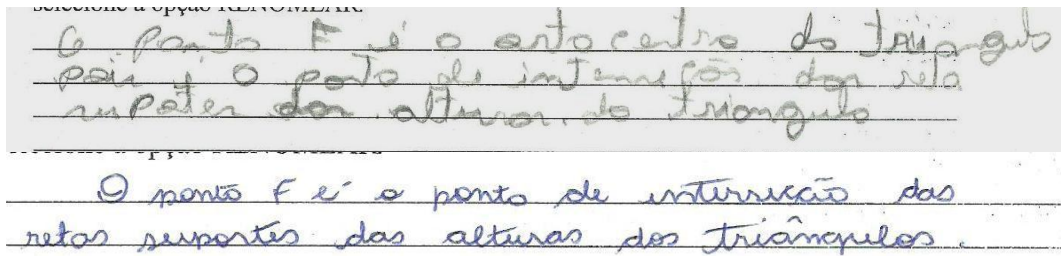 selecione a opção RENOMEAR.
O Ponto F é o ortocentro do triangulo
pois é o ponto de interseção das reta
supotes das alturas do triangulo
O ponto F é o ponto de interseção das
retas suportes das alturas dos triângulos.